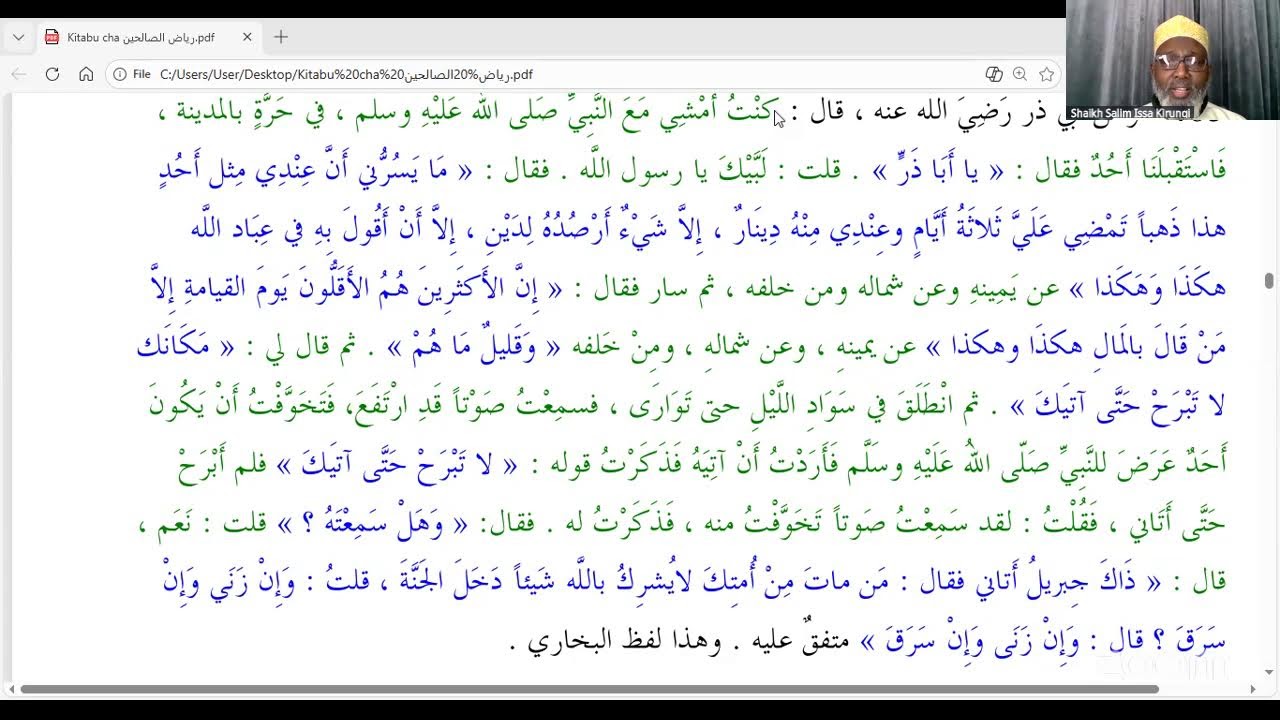 Kitabu cha رياض الصالحين.pdf
File C:/Users/User/Desktop/Kitabu%20cha%20رياض%20الصالحين.pdf
Shaikh Salim Issa Kirungi
ذر رَضِيَ الله عنه ، قال : كنْتُ أمْشِي مَعَ النَّبِيِّ صَلى الله عَليْهِ وسلم ، في حَرَّةٍ بالمدينة ،
فَاسْتَقْبلَنَا أَحُدٌ فقال : « يا أَبَا ذَرٍّ » . قلت : لَبَّيْكَ يا رسول اللَّه . فقال : « مَا يَسُرُّني أَنَّ عِنْدِي مِثل أَحُدٍ
هذا ذَهباً تَمْضِي عَلَيَّ ثَلاثَةُ أَيَّامٍ وعِنْدِي مِنْهُ دِينَارٌ ، إلاَّ شَيْءٌ أَرْصُدُهُ لِدَيْنِ ، إلاَّ أَنْ أَقُولَ بِهِ في عِبَاد اللَّه
هكَذَا وَهَكَذا » عن يَمِينهِ وعن شماله ومن خلفه ، ثم سار فقال : « إنَّ الأَكثَرِينَ هُمُ الأَقَلُّونَ يَومَ القيامةِ إلاَّ
مَنْ قَالَ بالمَالِ هكذَا وهكذا » عن يمينهِ ، وعن شمالهِ ، ومِنْ خَلفه « وَقَليلٌ مَا هُمْ » . ثم قال لي : « مَكَانَك
لا تَبْرَحْ حَتَّى آتيَكَ » . ثم انْطَلَقَ في سَوَادِ اللَّيْلِ حتى تَوَارَى ، فسمِعْتُ صَوْتاً قَدِ ارْتَفَعَ، فَتَخَوَّفْتُ أَنْ يَكُونَ
أَحَدٌ عَرَضَ للنَّبِيِّ صَلّى اللهُ عَلَيْهِ وسَلَّم فَأَرَدْتُ أَنْ آتِيَهُ فَذَكَرْتُ قوله : « لا تَبْرَحْ حَتَّى آتيَكَ » فلم أَبْرَحْ
حَتَّى أَتَاني ، فَقُلْتُ : لقد سَمِعْتُ صَوتاً تَخَوَّفْتُ منه ، فَذَكَرْتُ له . فقال: « وَهَلْ سَمِعْتَهُ ؟ » قلت : نَعَم ،
قال : « ذَاكَ جِبريلُ أَتاني فقال : مَن ماتَ مِنْ أُمتِكَ لايُشرِكُ باللَّه شَيئاً دَخَلَ الجَنَّةَ ، قلتُ : وَإِنْ زَنَي وَإِنْ
سَرَقَ ؟ قال : وَإِنْ زَنَى وَإِنْ سَرَقَ » متفقٌ عليه . وهذا لفظ البخاري .